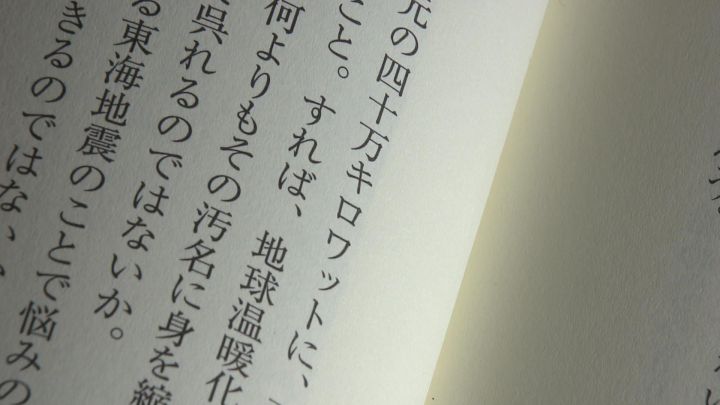 元の四十万キロワットに、
こと。すれば、地球温暖化
何よりもその汚名に身を縮
呉れるのではないか。
る東海地震のことで悩みの
きるのではない